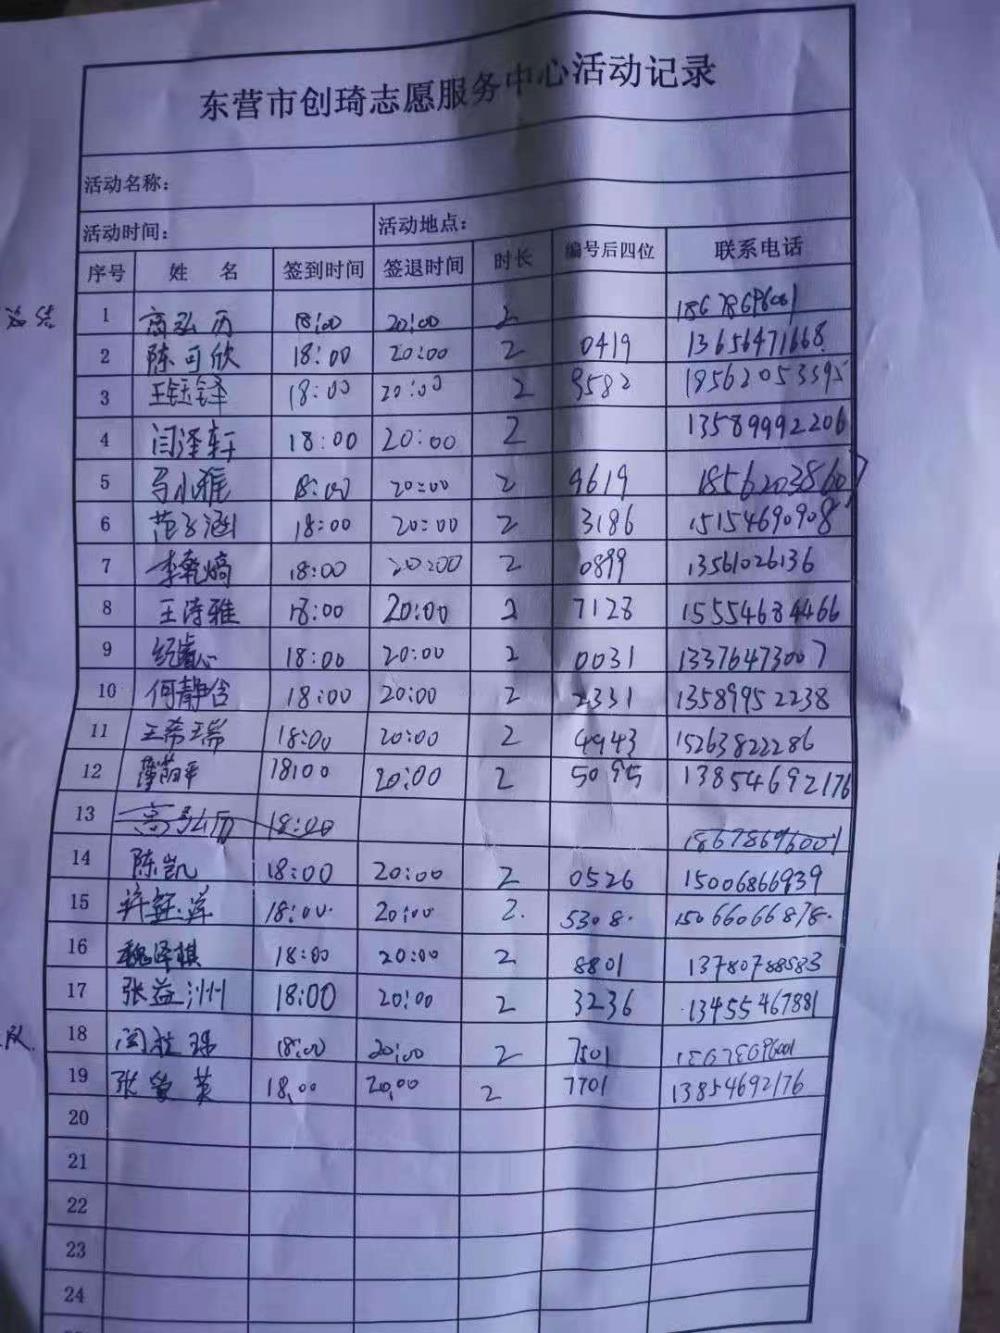 东营市创琦志愿服务中心活动记录
活动名称：
活动时间： 活动地点：
序号 姓 名 签到时间 签退时间 时长 编号后四位 联系电话
1 高弘历 18:00 20:00 2 18678696001
2 陈可欣 18:00 20:00 2 0419 13656471668
3 王钰铎 18:00 20:00 2 9582 18562053595
4 闫泽轩 18:00 20:00 2 13589992206
5 马小雅 18:00 20:00 2 9619 18562038607
6 范子涵 18:00 20:00 2 3186 15154690908
7 李乾熇 18:00 20:00 2 0899 13561026136
8 王诗雅 18:00 20:00 2 7128 15554684466
9 18:00 20:00 2 0031 13376473007
10 何静含 18:00 20:00 2 2331 13589952238
11 王希瑞 18:00 20:00 2 4943 15263822286
12 18:00 20:00 2 5095 13854692176
13 高弘历 18:00 18678696001
14 陈凯 18:00 20:00 2 0526 15006866939
15 18:00. 20:00 2. 5308. 15066066878.
16 魏泽棋 18:00 20:00 2 8801 13780788583
17 张益洲 18:00 20:00 2 3236 13455467881
18 18:00 20:00 2 7501 18678696001
19 张爱英 18.00 20.00 2 7701 13854692176
20
21
22
23
24